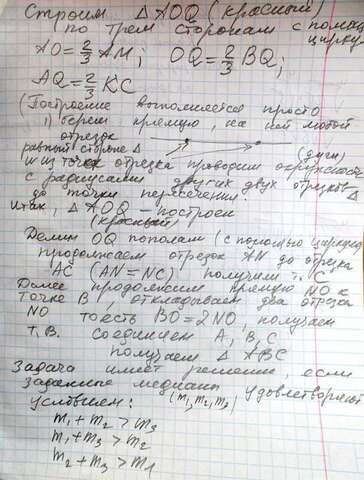 Строим △ AOQ (красный)
(по трем сторонам с помощ.
цирку
AO = 2/3 AM; OQ = 2/3 BQ;
AQ = 2/3 KC
(Построение выполняется просто
1) берем прямую, на ней любой
отрезок
равный стороне △ (дуги)
из точек отрезка проводим окружност
с радиусами других двух отрезков △
до точки пересечения.
Итак, △ AOQ – построен
(красный)
Делим OQ пополам (с помощью циркуля)
продолжаем отрезок AN до отрезка
AC (AN = NC) получим т. C
Далее продолжим прямую NO к
точке B, откладываем два отрезка
NO то есть BO = 2NO, получаем
т. B. соединяем A, B, C
получаем △ ABC
Задача имеет решение, если
заданные медианы удовлетворяют
условием: (m1, m2, m3)
m1 + m2 > m3
m1 + m3 > m2
m2 + m3 > m1